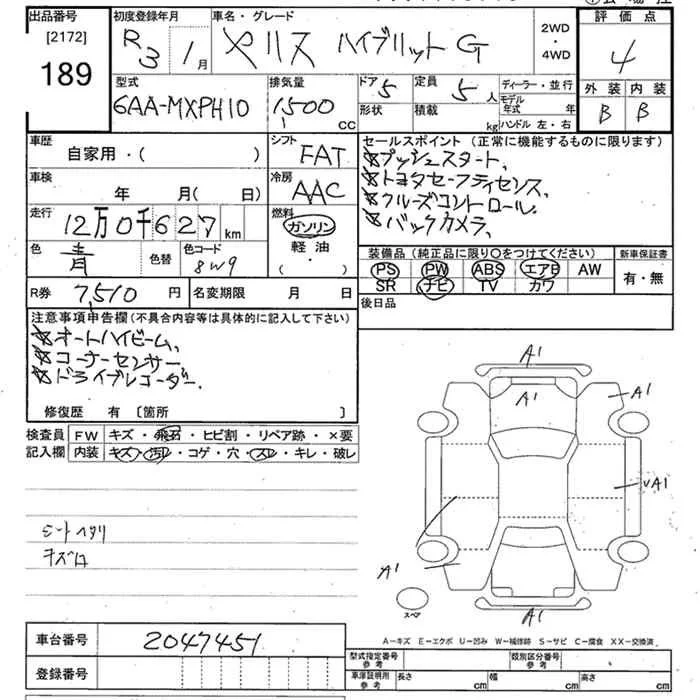 出品番号
[2172]
189
初度登録年月
R3 1月
車名・グレード
ヤリス ハイブリット G
2WD
・
4WD
評価点
4
外装 内装
B B
型式
6AA-MXPH10
排気量
1500 CC
ドア 5
定員 5 人
形状
積載 kg
ディーラー・並行
モデル年式 年
ハンドル 左・右
車歴
自家用・( )
シフト
FAT
車検
年 月( 日)
冷房
AAC
走行
12万0千627km
燃料
ガソリン
軽油
・( )
色
青
色替
色コード
8W9
R券 7,510 円
名変期限 月 日
セールスポイント (正常に機能するものに限ります)
☆プッシュスタート、
☆トヨタセーフティセンス、
☆クルーズコントロール。
☆バックカメラ、
装備品 (純正品に限り〇をつけてください)
PS PW ABS エアB AW
SR ナビ TV カワ
新車保証書
有・無
後日品
注意事項申告欄 (不具合内容等は具体的に記入して下さい)
☆オートハイビーム、
☆コーナーセンサー
☆ドライブレコーダー.
修復歴 有 〔箇所 〕
検査員 FW キズ・飛石・ヒビ割・リペア跡・×要
記入欄 内装 キズ・汚レ・コゲ・穴・スレ・キレ・破レ
シートヘタリ
キズ
A1
A1
A1
VA1
A1
A1
スペア
A-キズ E-エクボ U-凹み W-補修跡 S-サビ C-腐食 XX-交換済
車台番号 2047451
登録番号
型式指定番号 参考
類別区分番号 参考
車庫証明用 参考
長さ cm
幅 cm
高さ cm